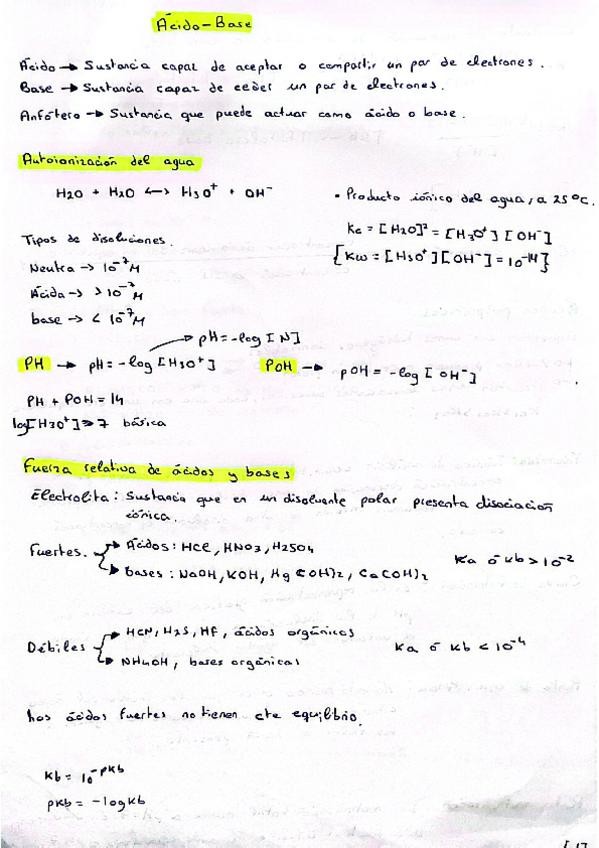 Ácido-Base
Ácido → Sustancia capaz de aceptar o compartir un par de electrones.
Base → Sustancia capaz de ceder un par de electrones.
Anfótero → Sustancia que puede actuar como ácido o base.
Autoionización del agua
H2O + H2O ↔ H3O⁺ + OH⁻
• Producto iónico del agua, a 25ºC.
Kc = [H2O]² = [H3O⁺] [OH⁻]
{Kw = [H3O⁺] [OH⁻] = 10⁻¹⁴}
Tipos de disoluciones.
Neutra → 10⁻⁷ M
Ácida → > 10⁻⁷ M
base → < 10⁻⁷ M
pH = -log [N]
PH → pH = -log [H3O⁺]
POH → pOH = -log [OH⁻]
PH + POH = 14
log[H3O⁺] ≥ 7 básica
Fuerza relativa de ácidos y bases
Electrolita: Sustancia que en un disolvente polar presenta disociación
iónica.
Fuertes. Ácidos: HCl, HNO3, H2SO4
Bases: NaOH, KOH, Mg(OH)2, Ca(OH)2
Ka ó Kb > 10⁻²
Débiles HCN, H2S, HF, ácidos orgánicos
NH4OH, bases orgánicas
Ka ó Kb < 10⁻⁴
Los ácidos fuertes no tienen cte equilibrio.
Kb = 10⁻ᵖᴷᵇ
pKb = -log Kb